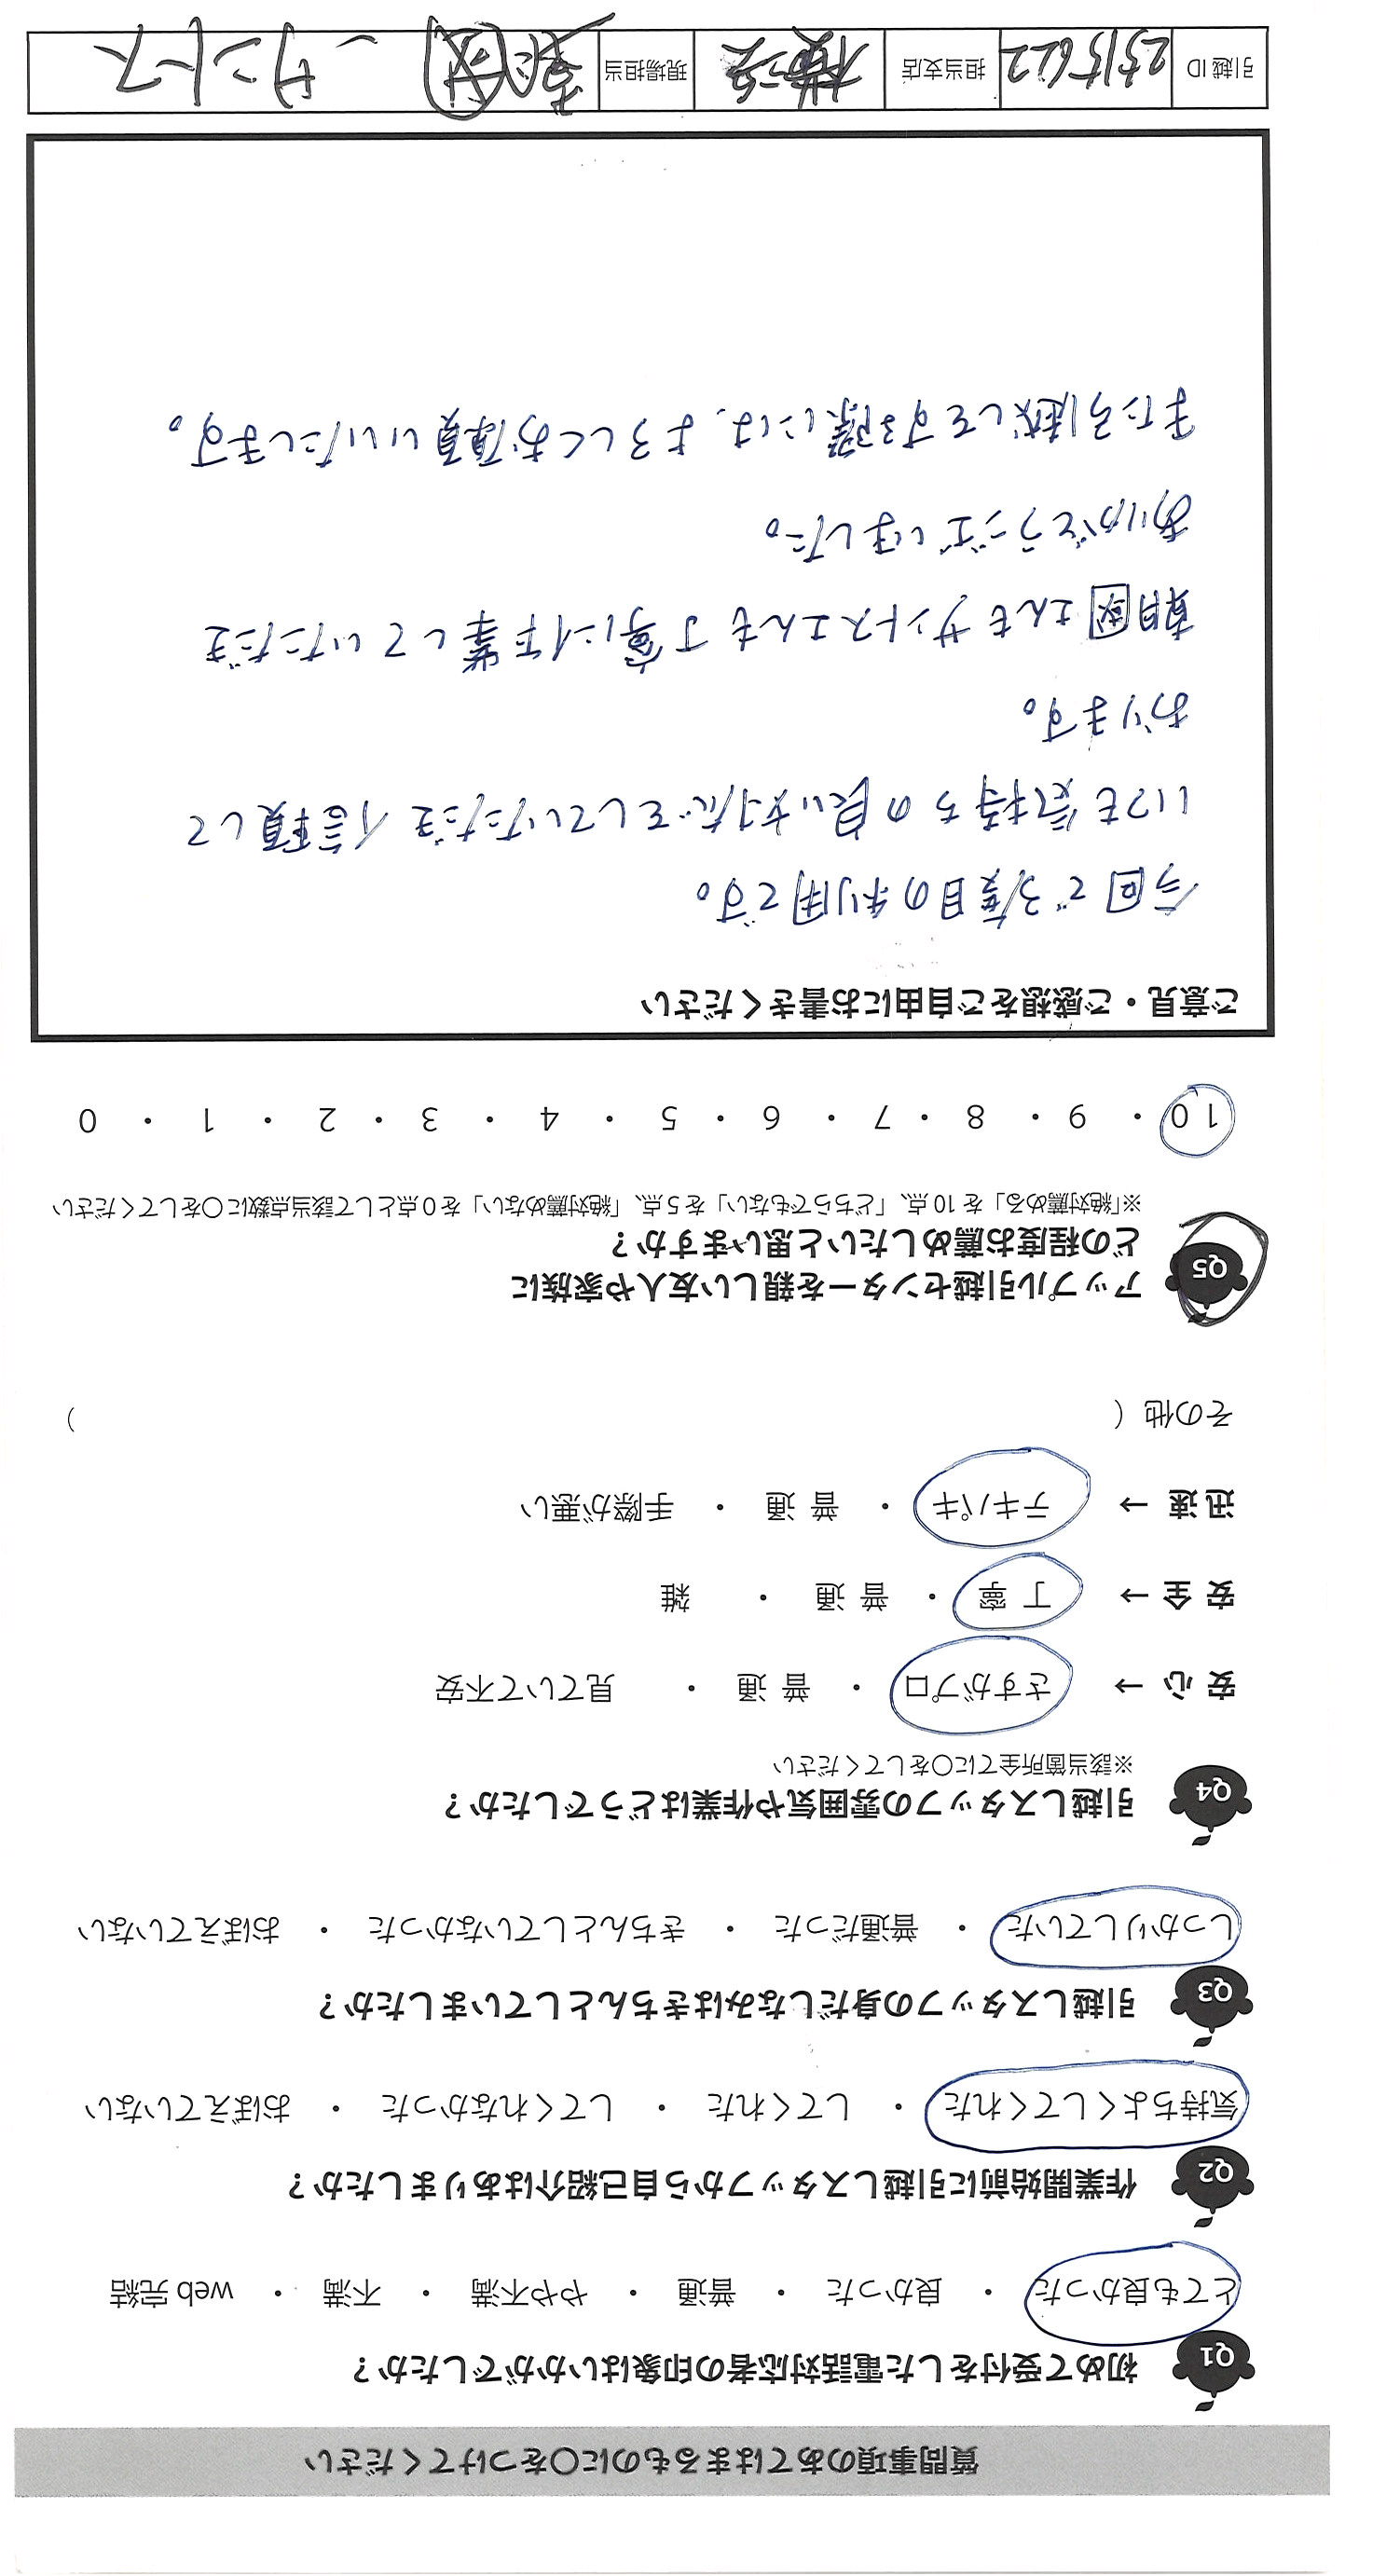 質問事項のあてはまるものに〇をつけてください
Q1 初めて受付をした電話対応者の印象はいかがでしたか？
とても良かった ・ 良かった ・ 普通 ・ やや不満 ・ 不満 ・ web 完結
Q2 作業開始前に引越しスタッフから自己紹介はありましたか？
気持ちよくしてくれた ・ してくれた ・ してくれなかった ・ おぼえていない
Q3 引越しスタッフの身だしなみはきちんとしていましたか？
しっかりしていた ・ 普通だった ・ きちんとしていなかった ・ おぼえていない
Q4 引越しスタッフの雰囲気や作業はどうでしたか？
※該当箇所全てに〇をしてください
安 心 → さすがプロ ・ 普 通 ・ 見ていて不安
安 全 → 丁 寧 ・ 普 通 ・ 雑
迅 速 → テキパキ ・ 普 通 ・ 手際が悪い
その他（ ）
Q5 アップル引越センターを親しい友人や家族に
どの程度お薦めしたいと思いますか？
※「絶対薦める」を 10 点、「どちらでもない」を 5 点、「絶対薦めない」を 0 点として該当点数に〇をしてください
10 ・ 9 ・ 8 ・ 7 ・ 6 ・ 5 ・ 4 ・ 3 ・ 2 ・ 1 ・ 0
ご意見・ご感想をご自由にお書きください
今回で3度目の利用です。
いつも気持ちの良い対応をしていただき信頼して
おります。
國さんもサントスさんも丁寧に作業していただき
ありがとうございました。
また引越しをする際には、よろしくお願いいたします。
引越 ID 担当支店 現場担当 サントス